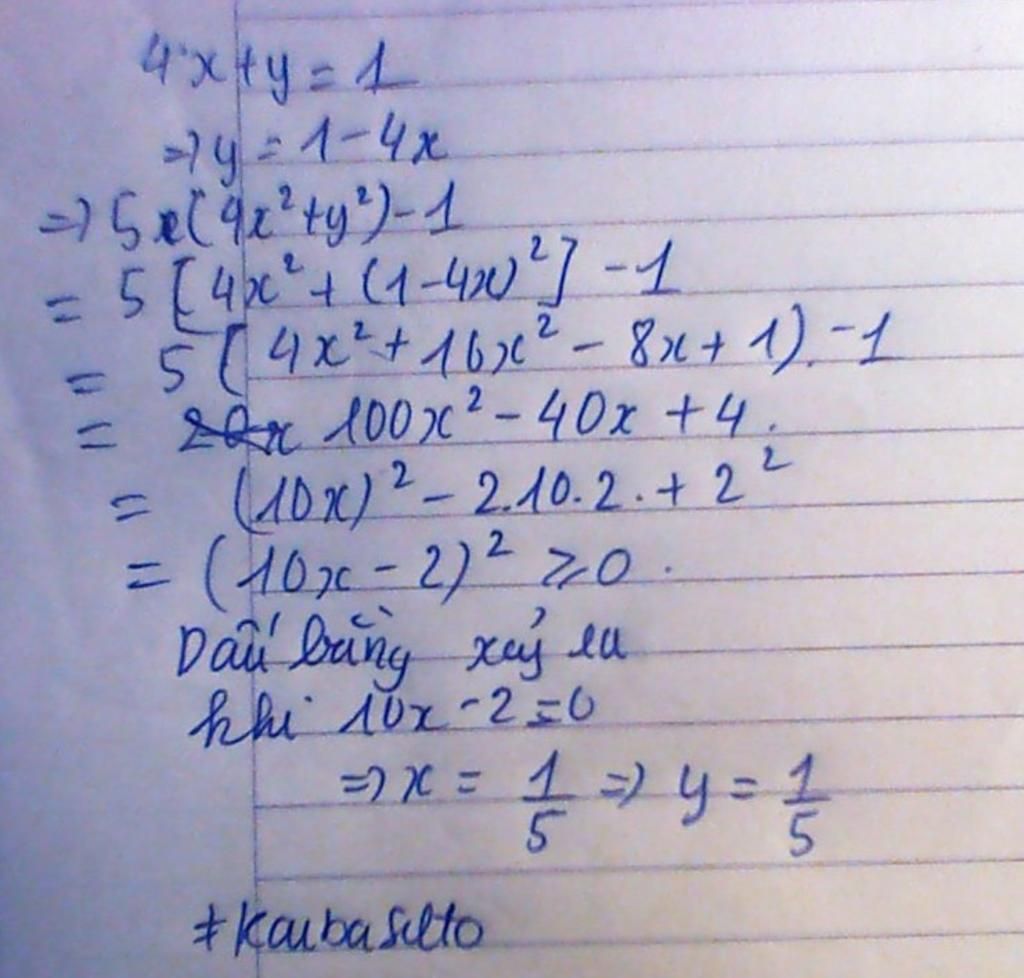 4x+y = 1
=> y = 1-4x
=> 5(4x²+y²)-1
= 5[4x²+(1-4x)²]-1
= 5(4x²+16x²-8x+1).-1
= 100x²-40x+4.
= (10x)²-2.10.2.+2²
= (10x-2)² ⩾0.
Dấu bằng xảy ra
khi 10x-2=0
=> x = 1/5 => y = 1/5